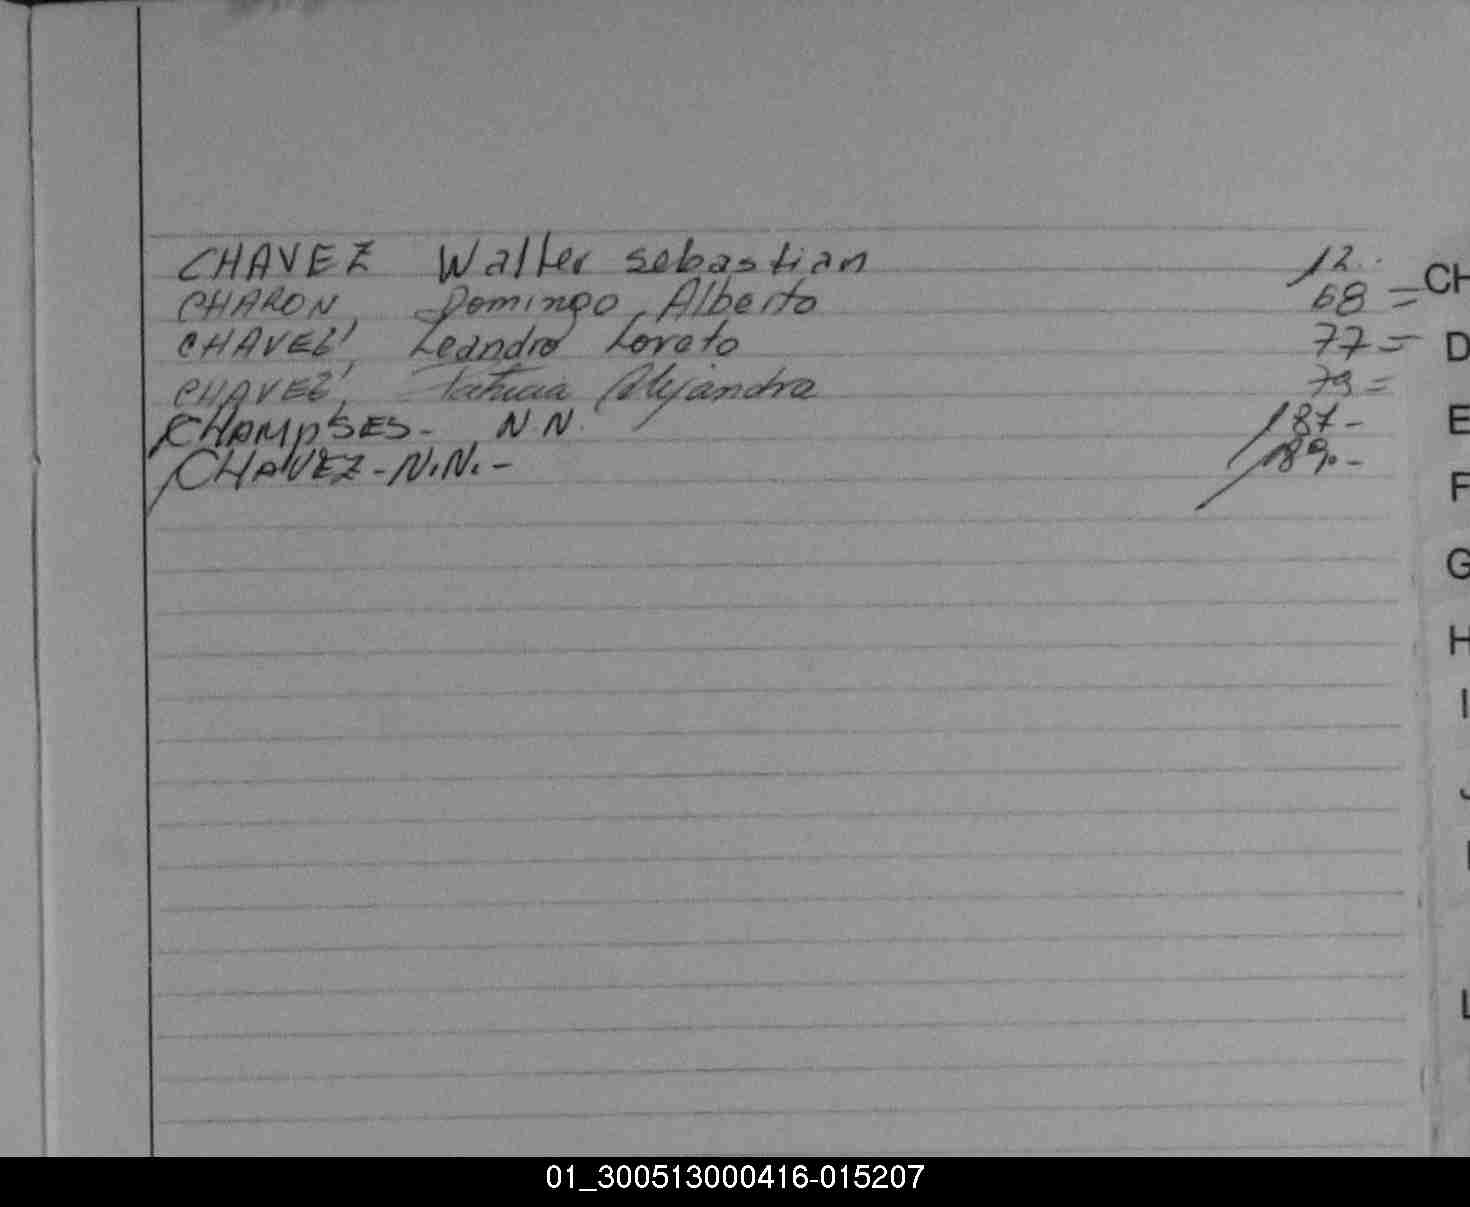 CHAVEZ Walter sebastian 12.
CHARON, Domingo Alberto 68 =
CHAVEZ, Leandro Loreto 77 =
CHAVEZ, Patricia Alejandra 79 =
CHAMPSES - N N. 187 -
CHAVEZ - N.N. - 189. -
CH
D
E
F
G
H
I
J
L
01_300513000416-015207